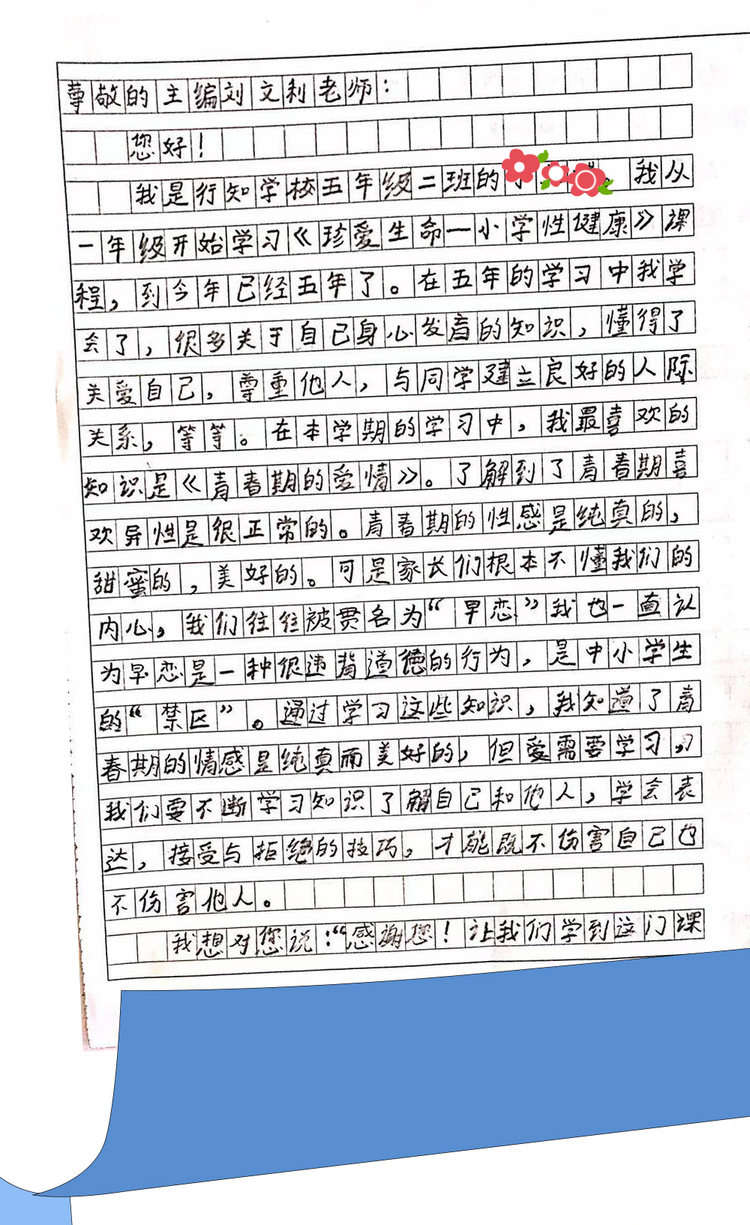 尊敬的主编刘文利老师：
您好！
我是行知学校五年级二班的。我从
一年级开始学习《珍爱生命—小学性健康》课
程，到今年已经五年了。在五年的学习中我学
会了，很多关于自己身心发育的知识，懂得了
关爱自己，尊重他人，与同学建立良好的人际
关系，等等。在本学期的学习中，我最喜欢的
知识是《青春期的爱情》。了解到了青春期喜
欢异性是很正常的。青春期的性感是纯真的，
甜蜜的，美好的。可是家长们根本不懂我们的
内心，我们往往被贯名为“早恋”我也一直认
为早恋是一种很违背道德的行为，是中小学生
的“禁区”。通过学习这些知识，我知道了青
春期的情感是纯真而美好的，但爱需要学习，
我们要不断学习知识了解自己和他人，学会表
达，接受与拒绝的技巧，才能既不伤害自己也
不伤害他人。
我想对您说：“感谢您！让我们学到这门课